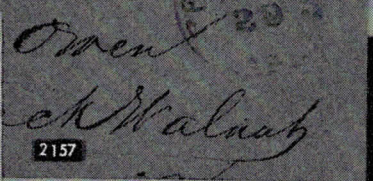 20
Owen
ck Walnut
2157